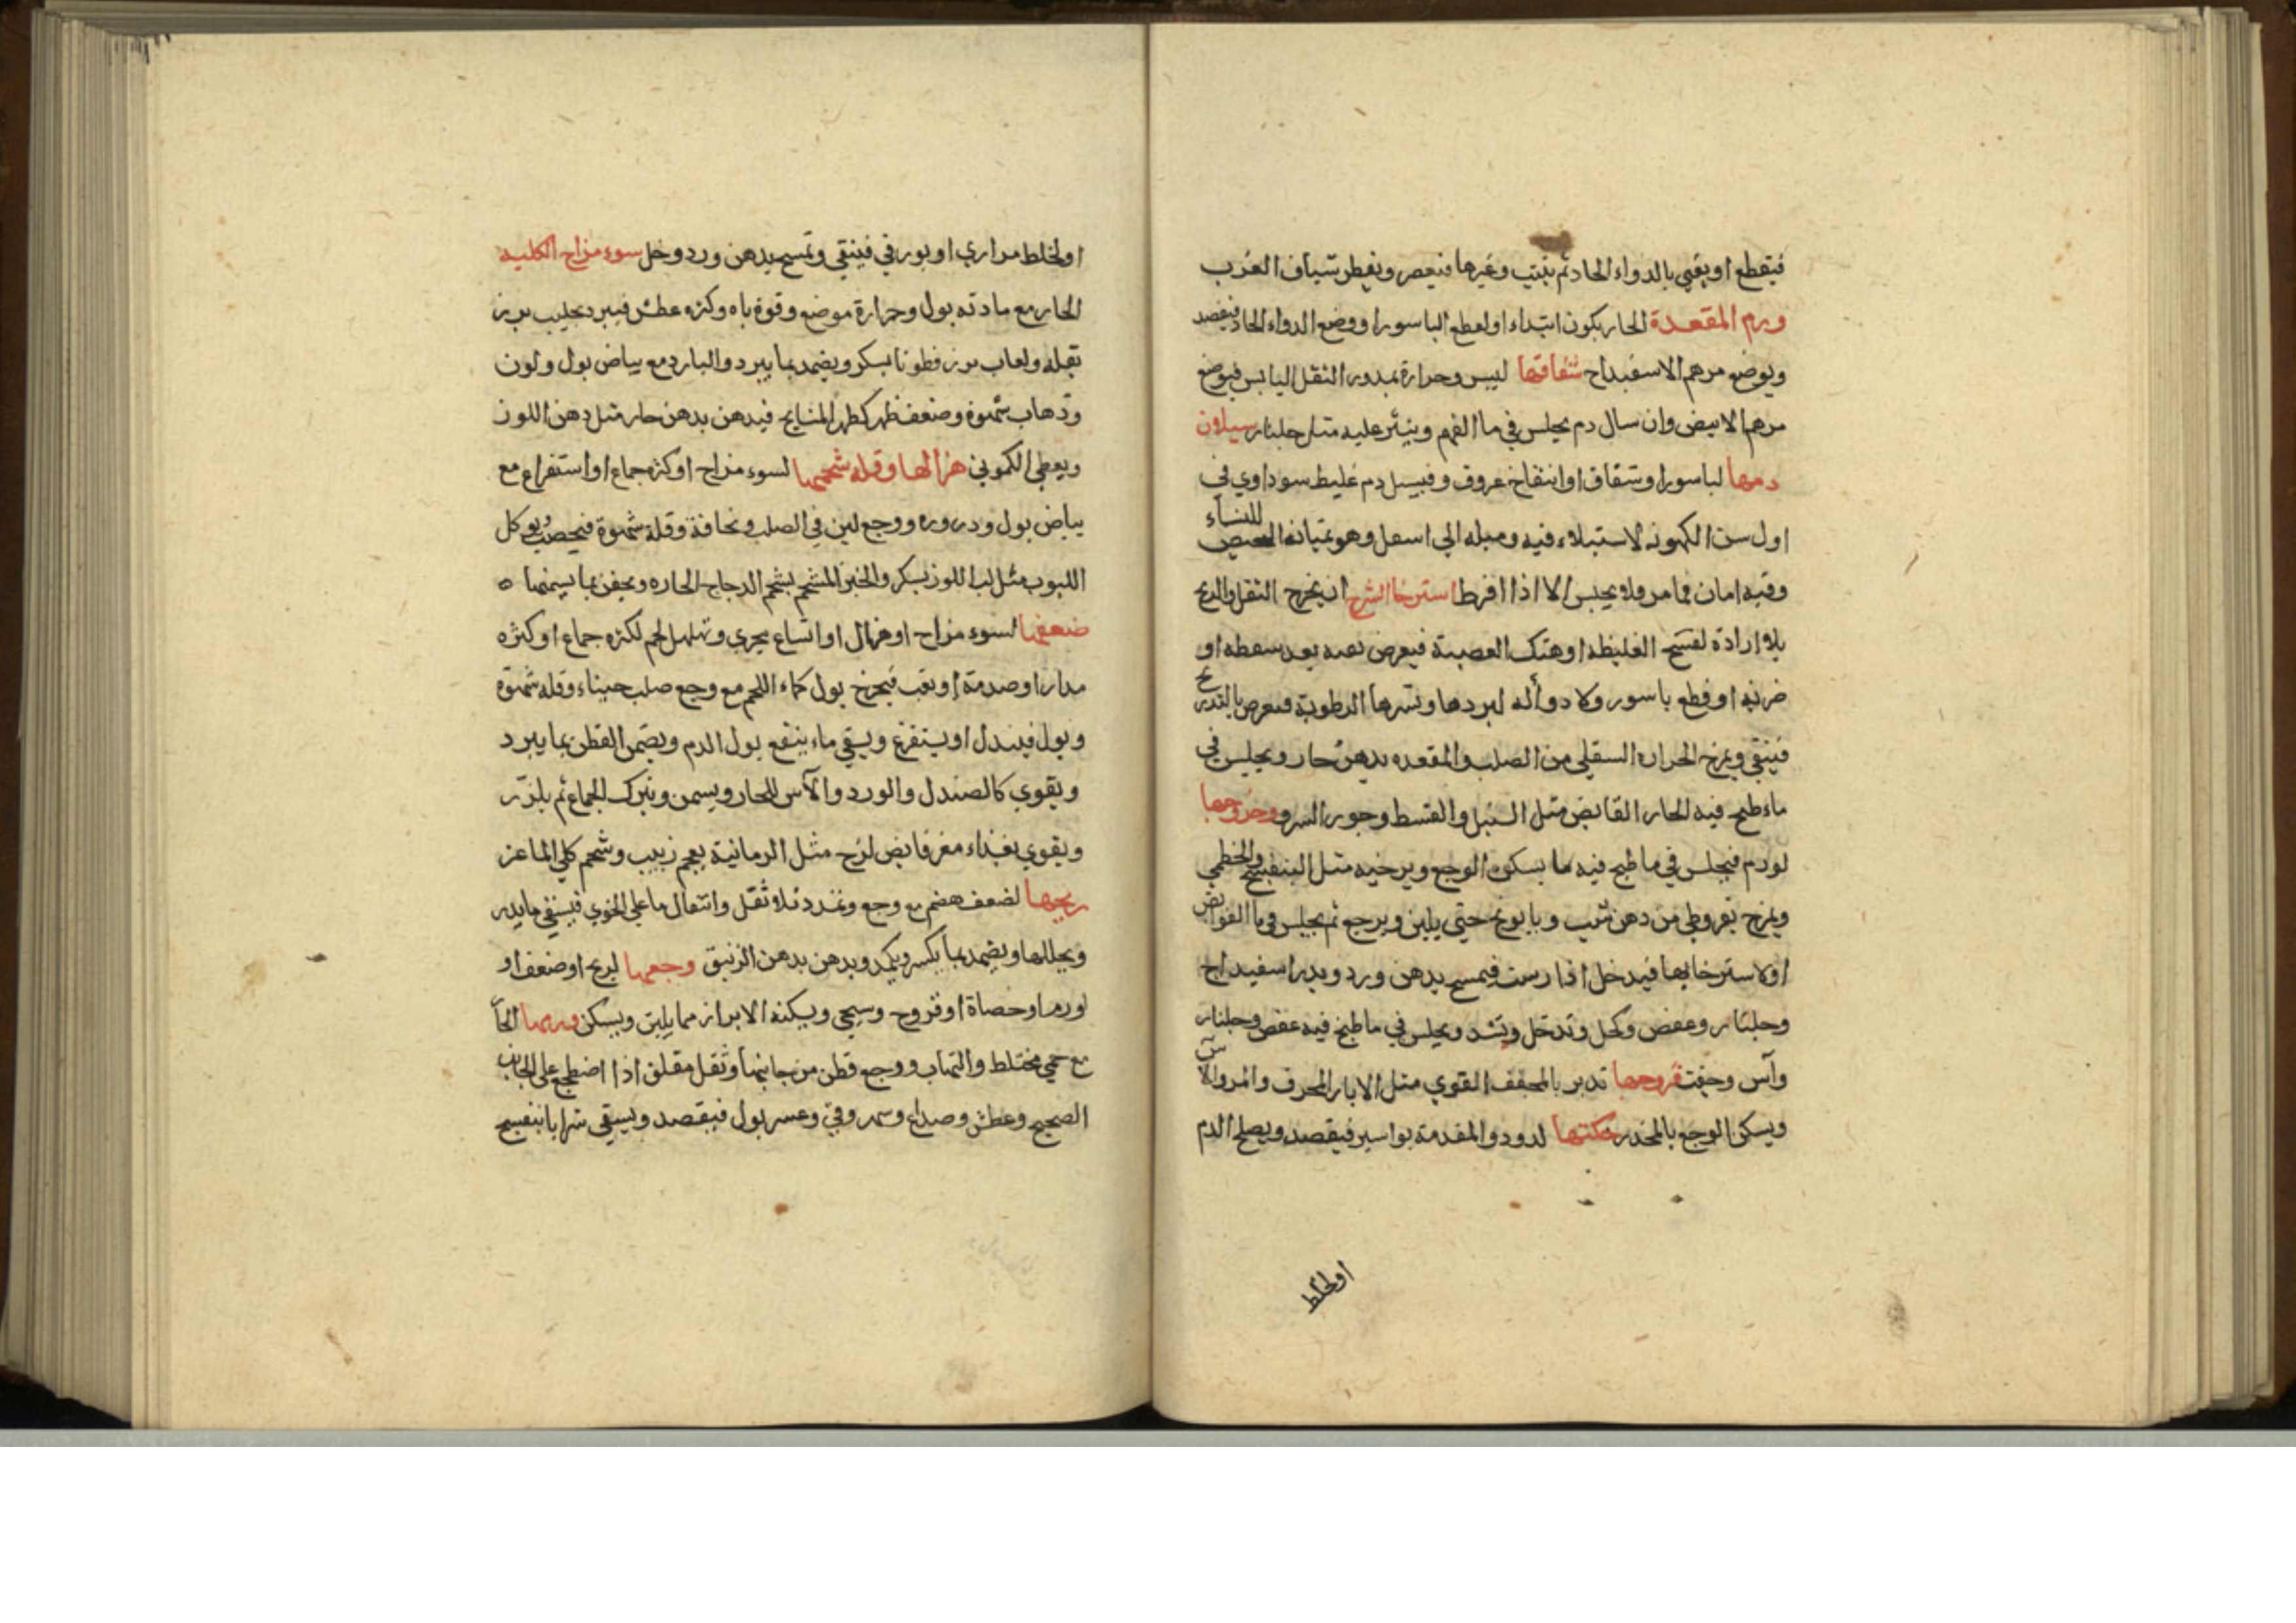 فيقطع او يفني بالدواء الحاد ثم ينبت وغيرها فيعصر ويقطر شياف الغرب
ورم المقعدة الحار يكون ابتداء او لقطع الباسور او وضع الدواء الحاد فيفصد
ويوضع مرهم الاسفيداج شقاقها ليبس وحرارة بمدور الثقل اليابس فيوضع
مرهم الابيض وان سال دم يجلس في ما القمقم وينثر عليه مثل جلنار سيلان
دمها لباسور او شقاق او انتفاخ عروق وفيسيل دم غليظ سوداوي في
اول سن الكهوله لاستيلاء فيه وميله الي اسفل وهو بمثابة الحيض للنساء
وفيه امان فما مر ولا يحبس الا اذا افرط استرخا الشرج ان يخرج الثقل والريح
بلا ارادة لفسخ الغليظه او هتك العصبة فيعرض بعد سقطه او
ضربه او قطع باسور ولا دوأ له لبردها وشربها الرطوبة فيعرض بالتدريج
فينقي ويمرخ الحراره السفلي من الصلب والمقعده بدهن حار ويجلس في
ماء طبخ فيه الحار القابض مثل السنبل والقسط وجوز السرو وخروجها
لورم فيجلس في ما طبخ فيه ما يسكن الوجع ويرخيه مثل البنفسج والخطمي
ويمرخ بقروطي من دهن شب وبابونج حتي يلين ويرجع ثم يجلس في ما القوابض
او لاسترخائها فيدخل اذا رست فيمسح بدهن ورد ويذر اسفيداج
وجلنار وعفص وكحل وتدخل وتشد ويجلس في ما طبخ فيه عفص وجلنار
وآس وجفت قروحها تدبر بالمجفف القوي مثل الابار المحرق والمر والآس
ويسكن الوجع بالمخدر حكتها لدود والمقدمة بواسير فيفصد ويصلح الدم
او لخلط
او لخلط مراري او بورقي فينقي وتمسح بدهن ورد وخل سوء مزاج الكليه
الحار مع مادته بول وحرارة موضع وقوة باه وكثره عطش فيبرد بحليب بزر
بقله ولعاب بزر قطونا بسكر ويضمد بما يبرد والبارد مع بياض بول ولون
وذهاب شهوة وضعف ظهر كظهر المشايخ فيدهن بدهن حار مثل دهن اللوز
ويعطي الكموني هزالها وقله شحمها لسوء مزاج او كثره جماع او استفراغ مع
بياض بول ودروره ووجع لين في الصلب ونحافة وقلة شهوة فيخصب ويوكل
اللبوب مثل لب اللوز بسكر والخبز المشحم بشحم الدجاج الحاره ويحقن بما يسمنها ه
ضعفها لسوء مزاج او هزال او اتساع مجري وتهلهل لحم لكثره جماع او كثره
مدار او صدمة او تعب فيخرج بول كماء اللحم مع وجع صلب حيناء وقله شهوة
وبول فيبدل او يستفرغ ويسقي ماء ينفع بول الدم ويضمن القطن بما يبرد
ويقوي كالصندل والورد والآس للحار ويسمن ويترك الجماع ثم يلزر
ويقوي بغذاء مغر قابض لزج مثل الرمانية بعجم زبيب وشحم كلي الماعز
ريحها لضعف هضم مع وجع وتمدد بلا ثقل وانتقال ما علي الخوي فيسقي ما يدر
ويحللها ويضمد بما يكسر ويكمد ويدهن بدهن الزنبق وجعها لريح او ضعف او
لورم او حصاة او قروح وسيجي ويسكنه الابزان مما يلين ويسكن ورمها الحا
مع حمي مختلط والتهاب ووجع قطن من جانبها وثقل مقلق اذا اضطجع علي الجانب
الصحيح وعطش وصداع وسهر وقي وعسر بول فيفصد ويسقي شرابا بنفسج